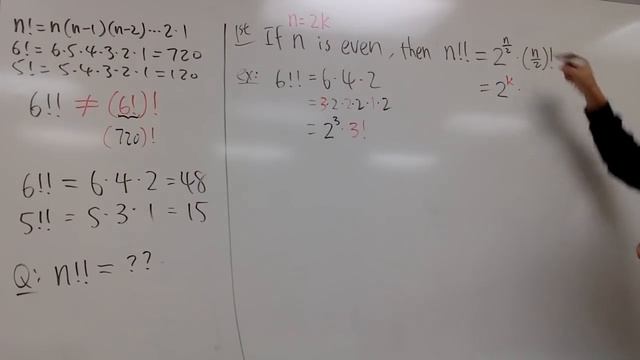 n! = n(n-1)(n-2)...2·1
6! = 6·5·4·3·2·1 = 720
5! = 5·4·3·2·1 = 120
6!! ≠ (6!)!
(720)!
6!! = 6·4·2 = 48
5!! = 5·3·1 = 15
Q: n!! = ??
n=2k
1st If n is even, then n!! = 2^(n/2) · (n/2)!
= 2^k ·
ex: 6!! = 6·4·2
= 3·2·2·2·1·2
= 2^3 · 3!